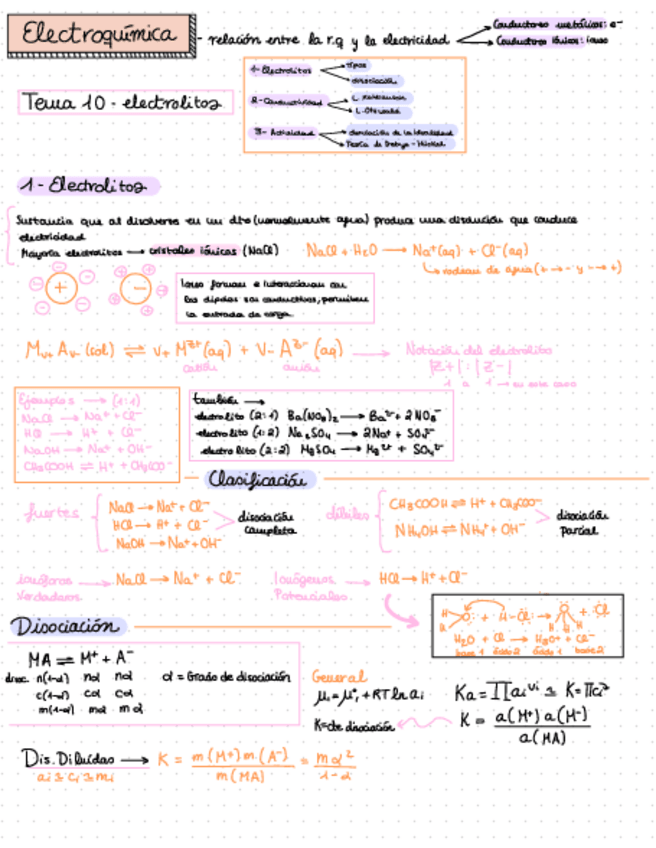 Electroquímica - relación entre la r.q y la electricidad
Conductores metálicos: e⁻
Conductores iónicos: iones
Tema 10 - electrolitos
1- Electrolitos
tipos
disociación
2- Conductividad
L. Kohlrausch
L. Ostwald
3- Actividad
desviación de la idealidad
Teoría de Debye - Hückel
1- Electrolitos
Sustancia que al disolverse en un dte (normalmente agua) produce una disolución que conduce
electricidad
Mayoría electrolitos → cristales iónicos (NaCl) NaCl + H₂O → Na⁺(aq) + Cl⁻(aq)
↳ rodean de agua (+ → - y - → +)
Iones forman e interaccionan con
los dipolos son conductivos, permiten
la entrada de carga
Mᵥ₊ Aᵥ₋ (sol) ⇌ ν₊ Mᶻ⁺(aq) + ν₋ Aᶻ⁻ (aq) → Notación del electrolito
catión anión |Z+| : |Z-|
1 a 1 → en este caso
Ejemplos → (1:1)
NaCl → Na⁺ + Cl⁻
HCl → H⁺ + Cl⁻
NaOH → Na⁺ + OH⁻
CH₃COOH ⇌ H⁺ + CH₃COO⁻
también →
electrolito (2:1) Ba(NO₃)₂ → Ba²⁺ + 2NO₃⁻
electrolito (1:2) Na₂SO₄ → 2Na⁺ + SO₄²⁻
electrolito (2:2) MgSO₄ → Mg²⁺ + SO₄²⁻
Clasificación
fuertes
NaCl → Na⁺ + Cl⁻
HCl → H⁺ + Cl⁻
NaOH → Na⁺ + OH⁻
disociación
completa
débiles
CH₃COOH ⇌ H⁺ + CH₃COO⁻
NH₄OH ⇌ NH₄⁺ + OH⁻
disociación
parcial
Ionóforos → NaCl → Na⁺ + Cl⁻
Verdaderos
Ionógenos → HCl → H⁺ + Cl⁻
Potenciales
H₂O + Cl → H₃O⁺ + Cl⁻
base 1 ácido 2 ácido 1 base 2
Disociación
MA ⇌ M⁺ + A⁻
disoc. n(1-α) nα nα α = Grado de disociación
c(1-α) cα cα
m(1-α) mα mα
General
μᵢ = μᵢ° + RT ln aᵢ
K = cte disociación
Ka = ∏ aᵢ^νᵢ
K = a(M⁺) a(M⁻) / a(MA)
Dis. Diluidas → K = m(M⁺) m(A⁻) / m(MA) = mα² / 1-α
aᵢ ≅ cᵢ ≅ mᵢ